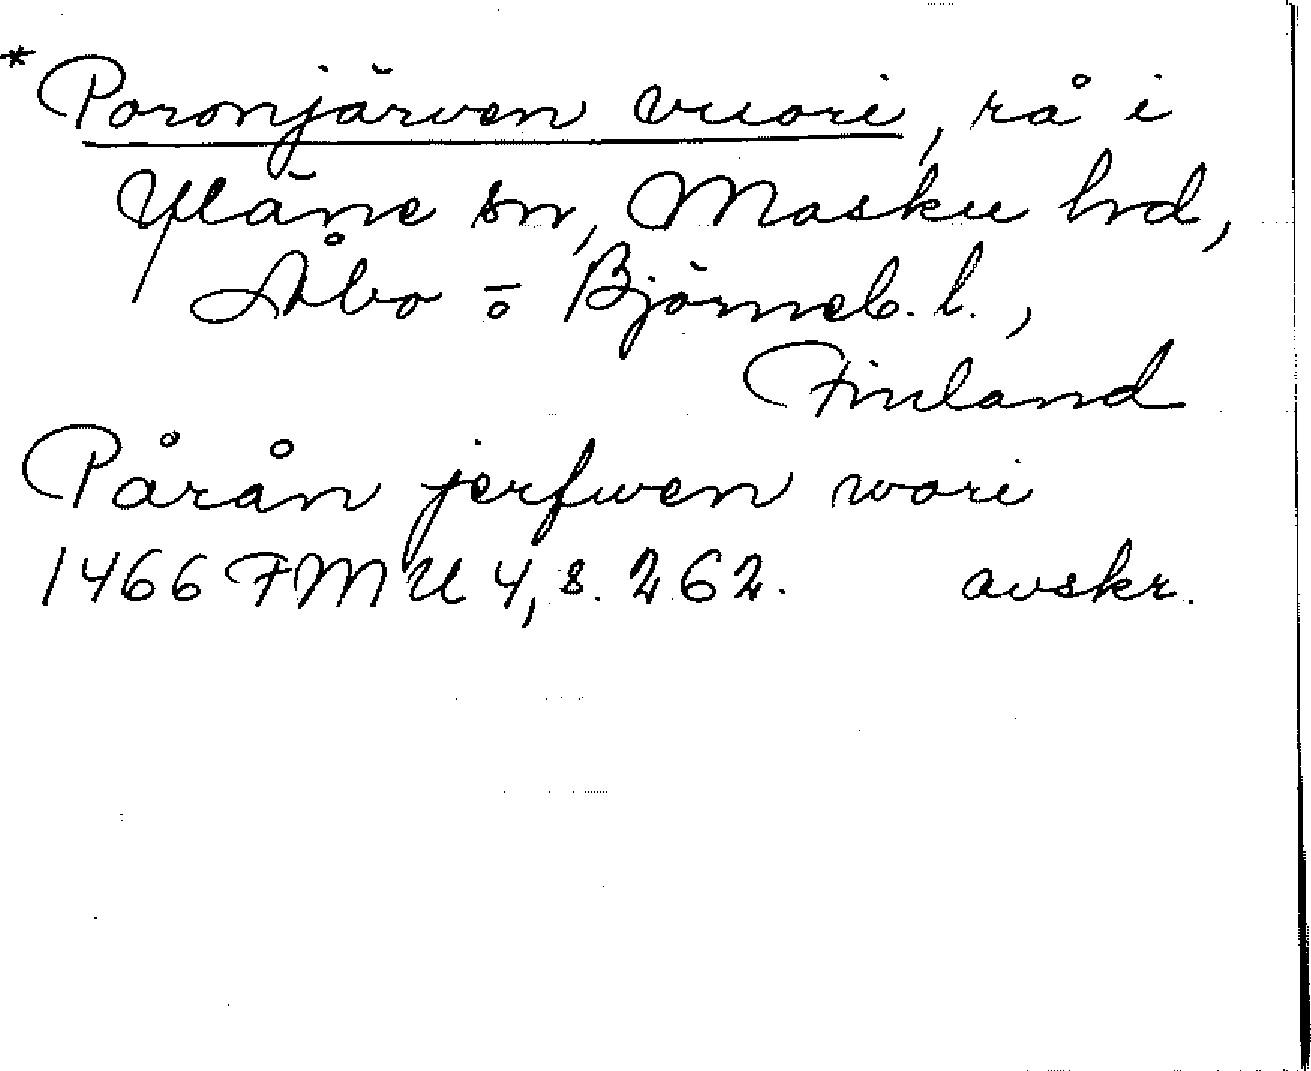 * Poronjärven vuori, rå i
Yläne sn, Masku hd,
Åbo o Björneb. l.,
Finland
Pårån jerfwen wori
1466 FMU 4, s. 262. avskr.